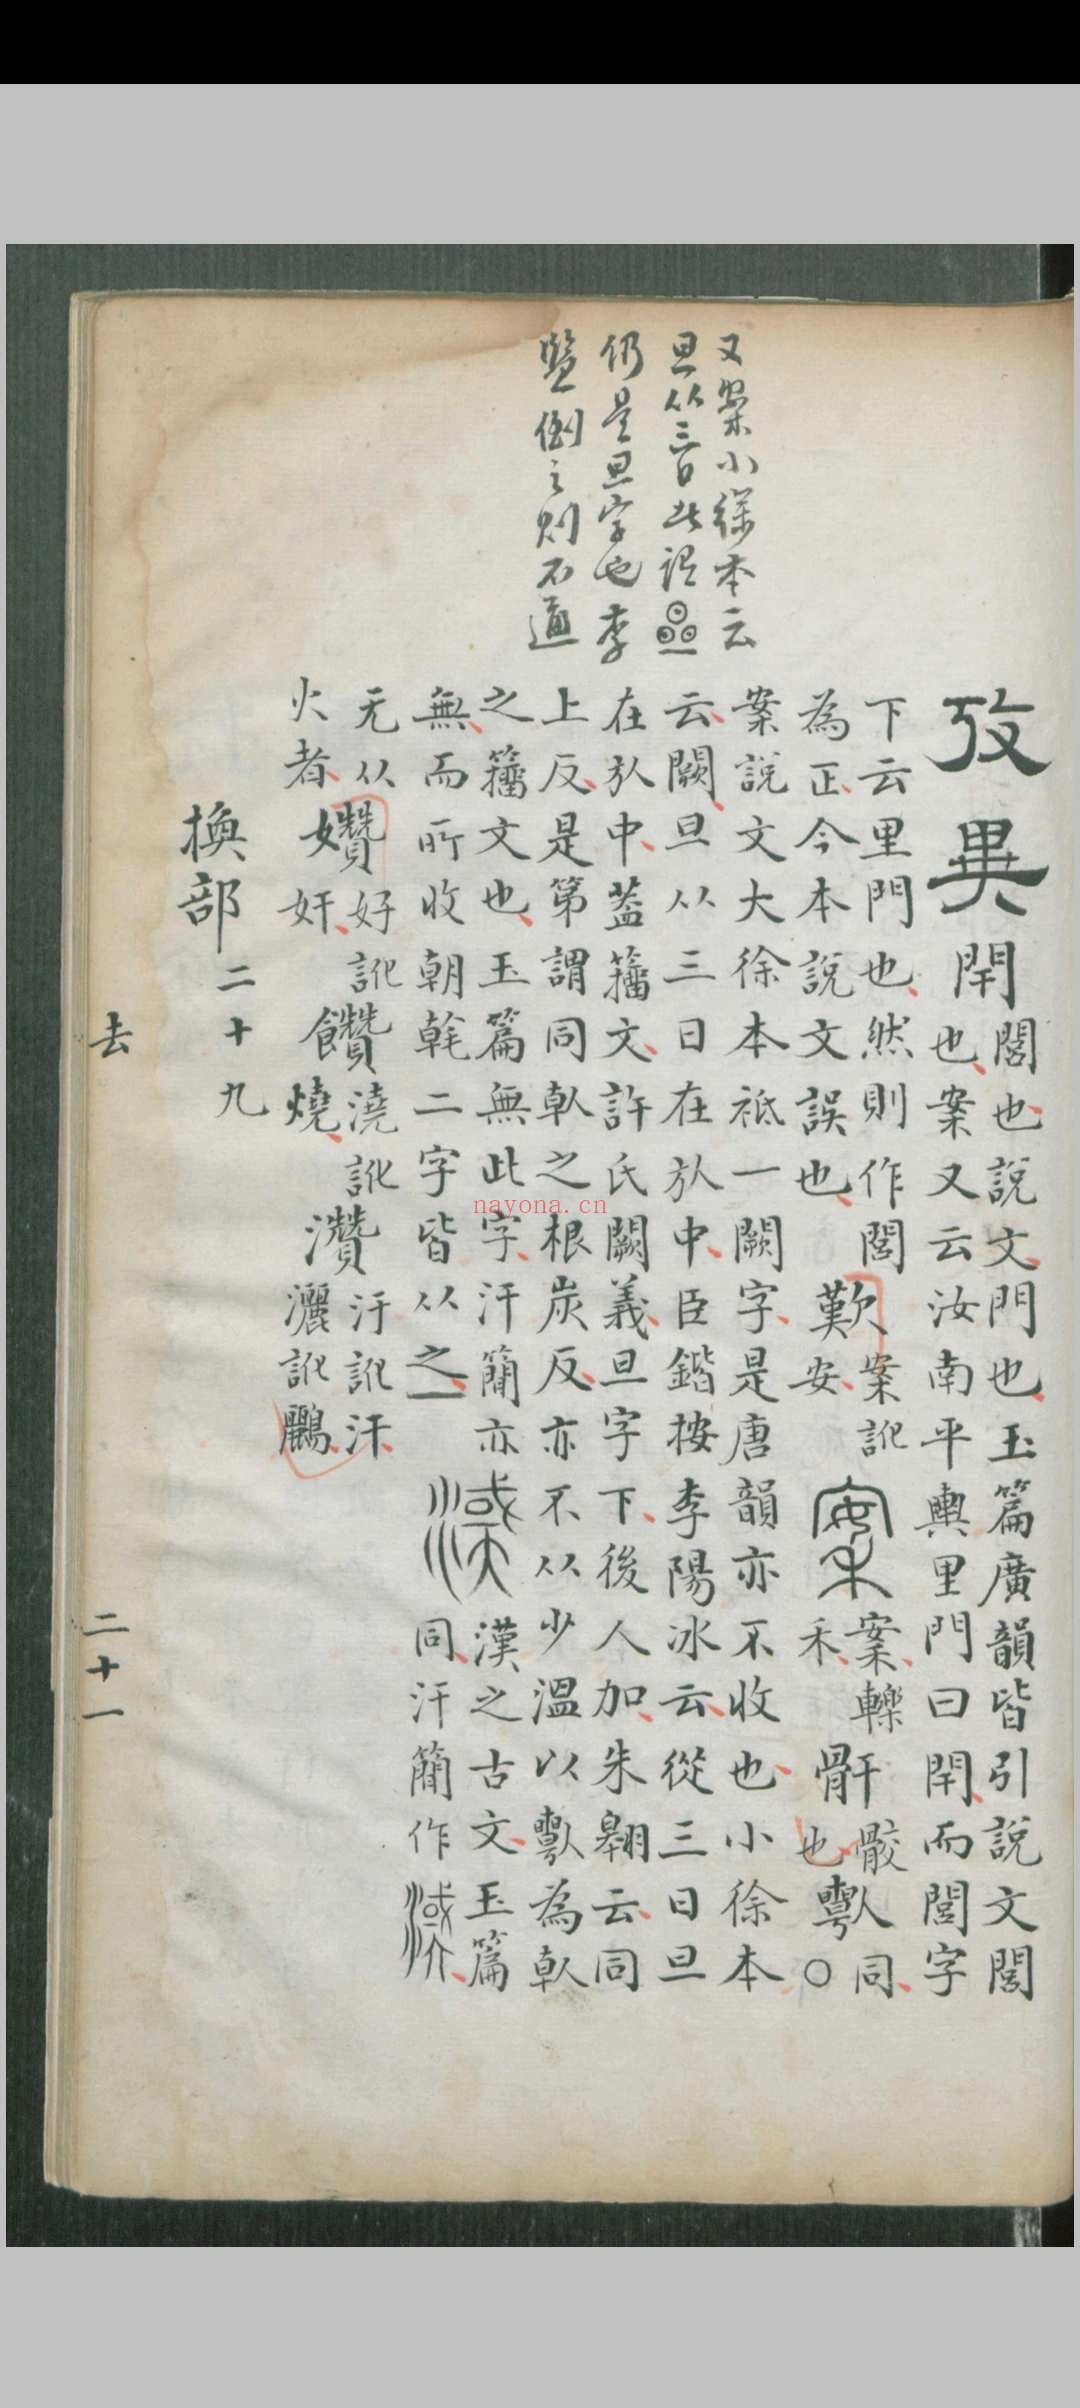 又案小徐本云
旦从三日此誤
仍是旦字也李
監倒之則不通
攷異
閈
閭也說文門也玉篇廣韻皆引說文閭
也案又云汝南平輿里門曰閈而閭字
下云里門也然則作閭
為正今本說文誤也
歎
案訛
安
案轢
禾
骭
骹
也
同
○
案說文大徐本祗一闕字是唐韻亦不收也小徐本
云闕旦从三日在㫃中臣鍇按李陽冰云從三日旦
在㫃中蓋籀文許氏闕義旦字下後人加朱翱云同
上反是第謂同倝之根炭反亦不从少溫以為倝
之籀文也玉篇無此字汗簡亦
無而所收朝乾二字皆从之
漢之古文玉篇
同汗簡作
无从
火者
好訛
奸
饡
澆訛
燒
灒
汙訛汗
灑訛
換部二十九
去
二十一
nayona.cn